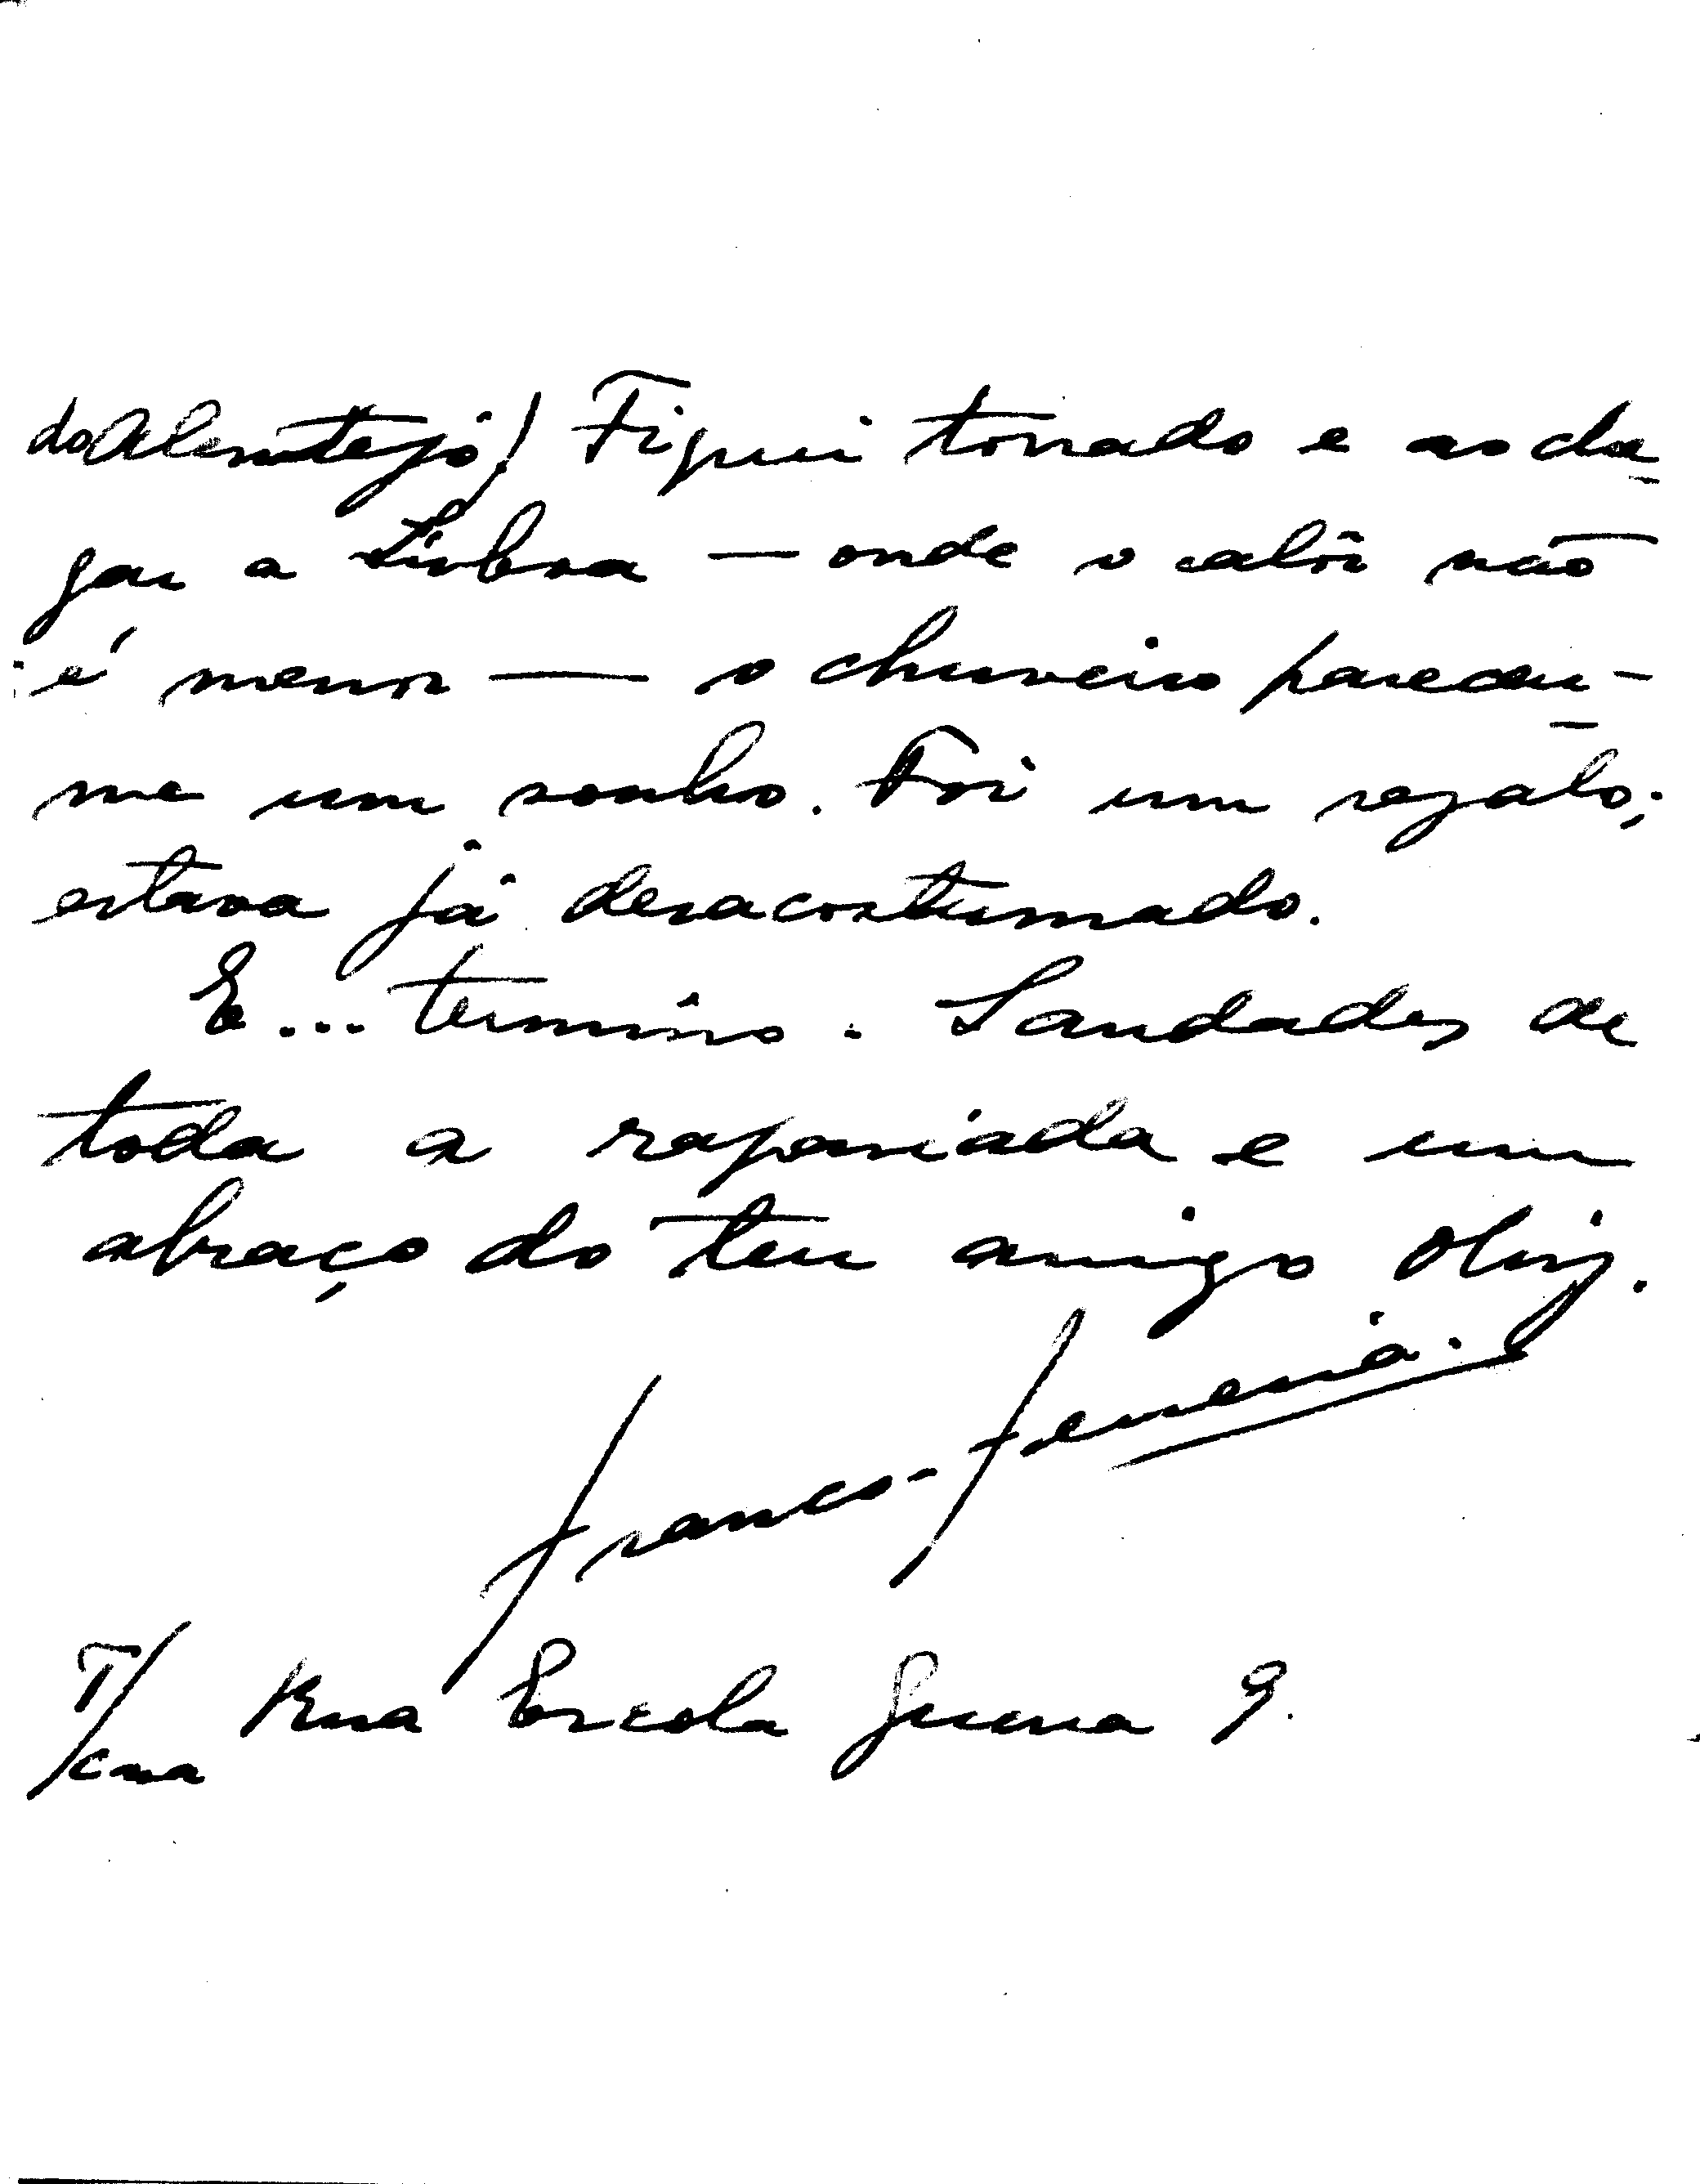 do Alemtejo! Fiquei torrado e ao che-
gar a Lisboa — onde o calôr não
é menor — o chuveiro pareceu-
me um sonho. Foi um regalo;
estava já desacostumado.
E... termino. Saudades de
toda a rapaziada e um
abraço do teu amigo obrig.
Franco-Ferreira.
T/ Rua Escola Guerra 9.
casa